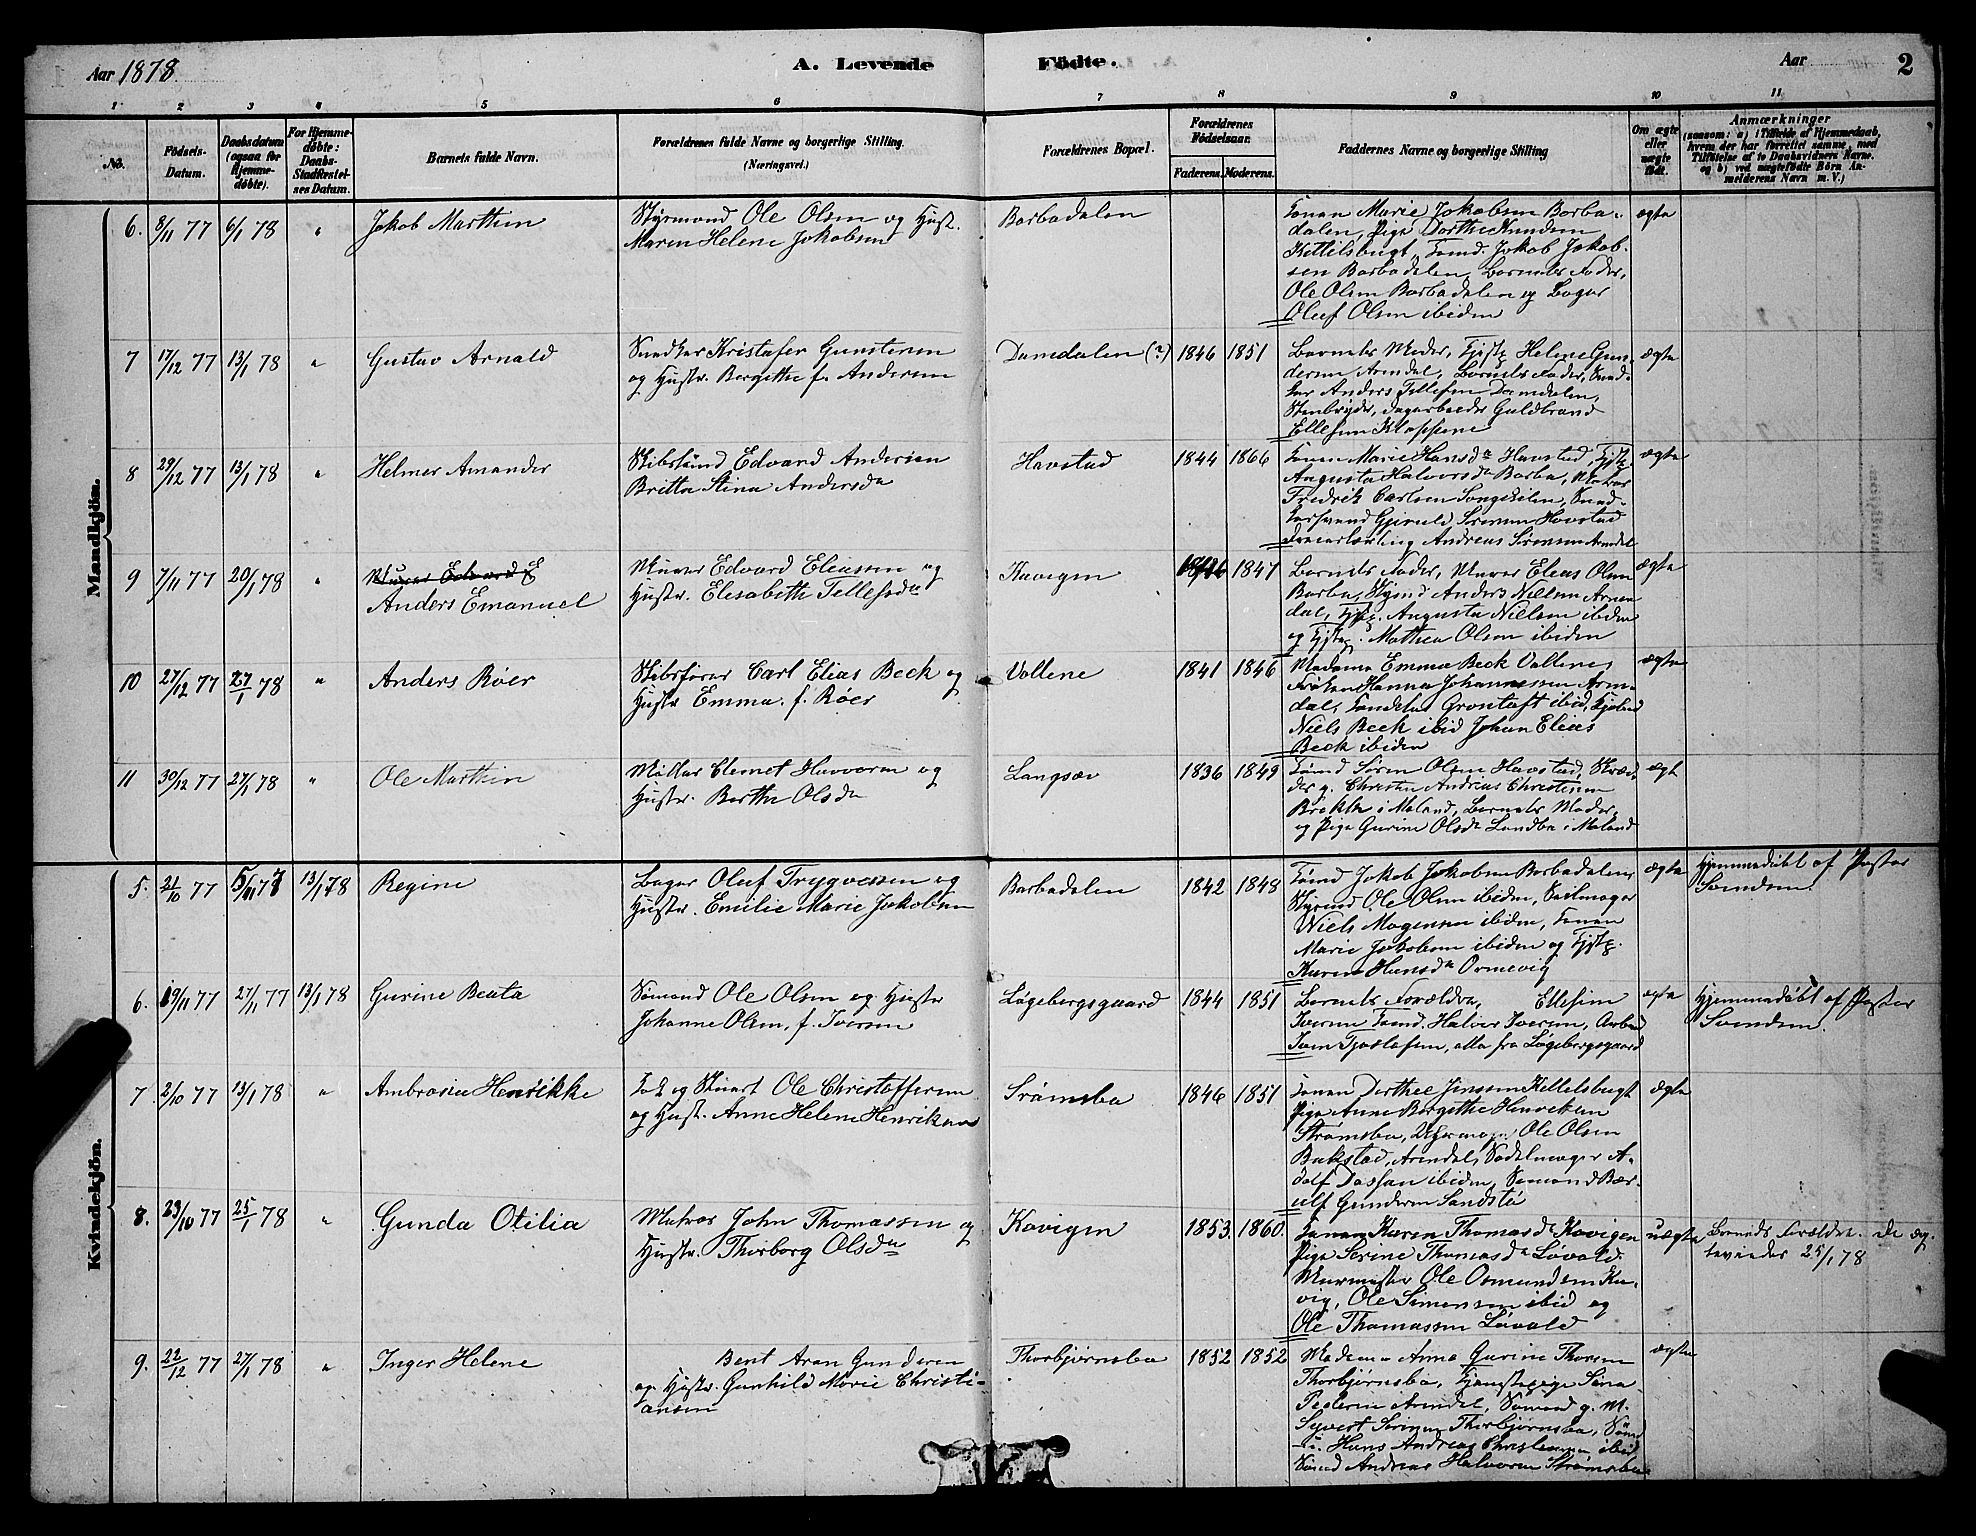 Aar 1878.
A. Levende Fødte.
Aar
2
1 2 3 4 5 6 7 8 9 10 11
No.
Fødsels-Datum.
Daabsdatum (ogsaa for Hjemmedøbte).
For Hjemmedøbte: Daabs-Stadfæstelses Datum.
Barnets fulde Navn.
Forældrenes fulde Navne og borgerlige Stilling. (Næringsvei.)
Forældrenes Bopæl.
Forældrenes Fødselsaar.
Faderens. Moderens.
Faddernes Navne og borgerlige Stilling
Om ægte eller uægte født.
Anmærkninger
(saasom: a) i Tilfælde af Hjemmedaab, hvem der har forrettet samme, med Tilføielse af to Daabsvidners Navne. og b) ved uægtefødte Børn Anmelderens Navn m. V.)
Mandkjön.
6. 8/11 77 6/1 78 " Jakob Marthin
Styrmand Ole Olsen og Hust.
Maren Helene Jakobsen
Barbadalen
Konen Marie Jokobsen Barba-
dalen, Pige Dorthe Knudsen
Kittelsbugt, Tømd. Jokob Jokob-
sen Barbadalen, Barnets Fader,
Ole Olsen Barbadalen og Bager
Oluf Olsen ibiden
ægte
7 17/12 77 13/1 78 " Gustav Arnald
Snedker Kristofer Gunstensen
og Hustr. Bergithe f. Andersen
Damdalen (?) 1846 1851
Barnets Moder, Tjstp. Helene Gun-
dersen Arendal, Barnets Fader, Sned-
ker Anders Tellefsen Damdalen,
Stenbryder, dagarbeider Guldbrand
Ellefsen Kloppene
ægte
8 29/12 77 13/1 78 " Helmer Amander
Skibstømd Edvard Andersen
Britta Stina Andersdn
Havstad 1844 1866
Konen Marie Hansdn Havstad, Tjstp.
Augusta Halvorsdn Barbo, Matros
Fredrik Carlsen Songekilen, Sned-
kersvend Gjeruld Sørensen Havstad
Andreas Sørensen Arendal
ægte
9 7/11 77 20/1 78 " Murer Edvard E
Anders Emanuel
Murer Edvard Eliassen og
Hustr. Elisabeth Tellefsdn
Kavigen 1846 1847
Barnets Fader, Murer Elias Olsen
Barbo, Stymd Anders Nielsen Aren-
dal, Tjstp. Augusta Nielsen ibiden
og Tjstp. Mathea Olsen ibiden
ægte
10 27/12 77 27/1 78 " Anders Röer
Skibsfører Carl Elias Beck og
Hustr Emma. f. Röer
Vollene 1841 1846
Madame Emma Beck Vollene,
Frøken Hanna Johannessen Aren-
dal, Grontoft ibid,
Niels Beck ibid Johan Elias
Beck ibiden
ægte
11 30/12 77 27/1 78 " Ole Marthin
Møller Clemet Havorsen og
Hustr. Berthe Olsdn
Langsæv 1836 1849
Tømd Søren Olsen Havstad, Skræd-
der g. Christen Andreas Christensen
Brække i Moland, Barnets Moder,
og Pige Gurine Olsdn Landba i Moland
ægt
Kvindekjön.
5. 21/10 77 5/11 77 13/1 78 Regine
Bager Oluf Trygvessen og
Hustr. Emilie Marie Jokobsen
Barbadalen 1842 1848
Tømd Jokob Jokobsen Barbadalen,
Styrmd Ole Olsen ibiden, Seilmager
Niels Mogensen ibiden, Konen
Marie Jokobsen ibiden og Tjstp.
Karen Hansdn Ormevig
ægte
Hjemmedøbt af Pastor
Svendsen.
6. 19/11 77 27/11 77 13/1 78 Gurine Beata
Sømand Ole Olsen og Hustr
Johanne Olsen, f. Iversen
Løgebergsgaard 1844 1851
Barnets Forældre, Ellefine
Iversen Tømd. Halvor Iversen, Arbmd
Iver Tjøstolfsen, alle fra Løgebergsgaard
ægte
Hjemmedøbt af Pastor
Svendsen.
7. 2/10 77 13/1 78 " Ambrosia Henrikke
Kok og Stuart Ole Christoffersen
og Hust. Anne Helene Henriksen
Strømsbo 1846 1851
Konen Dorthee Jenssen Kettelsbugt
Pige Anne Borgethe Henriksen
Strømsbo, Ole Olsen
Bukstad, Arendal, Sadelmager A-
dolf Dassan ibiden, Sømand Bær-
ulf Gundersen Sandstø
ægte
8. 23/10 77 25/1 78 " Gunda Otilia
Matros John Thomassen og
Hustr. Thorborg Olsdn
Kavigen 1853. 1860.
Konen Karen Thomasdn Kavigen
Pige Serine Thomasdn Løvold.
Murmester Ole Osmundsen Ka-
vig, Ole Simensen ibid og
Ole Thomassen Løvold
uægte
Barnets Forældre. de æg-
tevindes 25/1 78
9. 22/12 77 27/1 78 " Inger Helene
Bent Aron Gundersen
og Hustr. Gunhild Marie Christi-
ansen
Thorbjørnsbo 1852 1852
Madame Anna Gurine Thorsen
Thorbjørnsbo, Tjenstepige Sina
Pedersen Arendal, Sømand g. M.
Syvert Sørensen Thorbjørnsbo, Sømd
u. Hans Andreas Christensen ibid
Sømd Andreas Halvorsen Strømsbo
ægte